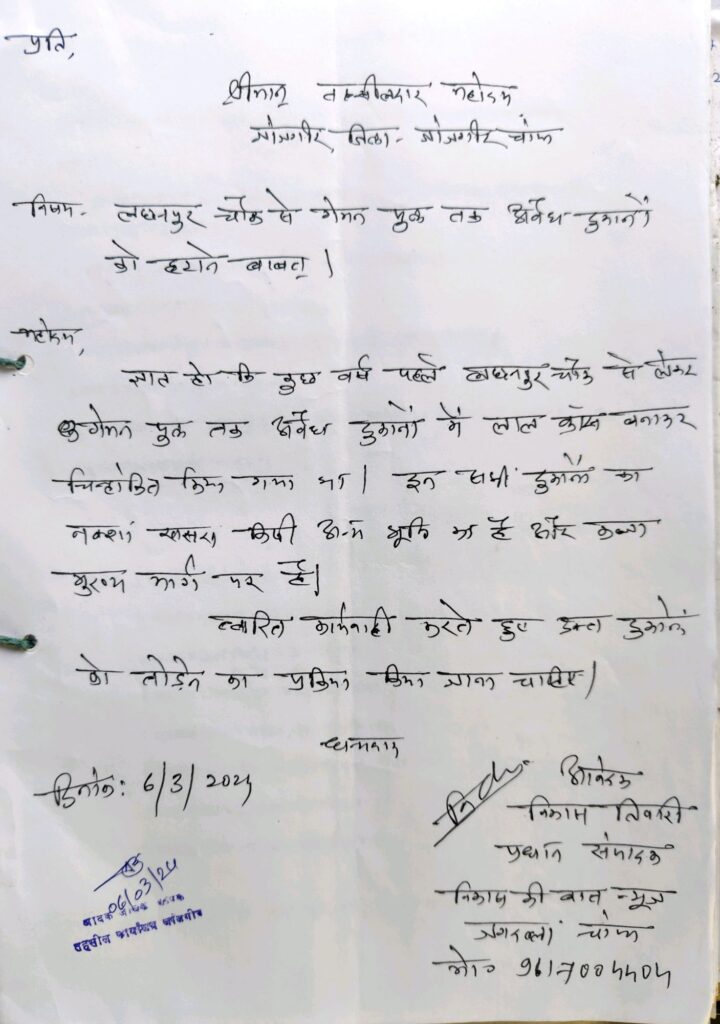 प्रति,
श्रीमान् तहसीलदार महोदय
जांजगीर, जिला- जांजगीर चांपा
विषय- लछनपुर चौक से गेमन पुल तक अवैध दुकानों
को हटाने बाबत् |
महोदय,
ज्ञात हो कि कुछ वर्ष पहले लछनपुर चौक से लेकर
गेमन पुल तक अवैध दुकानों में लाल क्रॉस बनाकर
चिन्हांकित किया गया था | इन सभी दुकानों का
नक्शा खसरा किसी अन्य भूमि का है और कब्जा
मुख्य मार्ग पर है|
त्वरित कार्यवाही करते हुए उक्त दुकानों
को तोड़ने का प्रक्रिया किया जाना चाहिए|
धन्यवाद
दिनांक: 6/3/2024
आवेदक
विकास तिवारी
प्रधान संपादक
विकास की बात न्यूज
चांपा
मो०
06/03/24
वाचक
तहसील कार्यालय जांजगीर